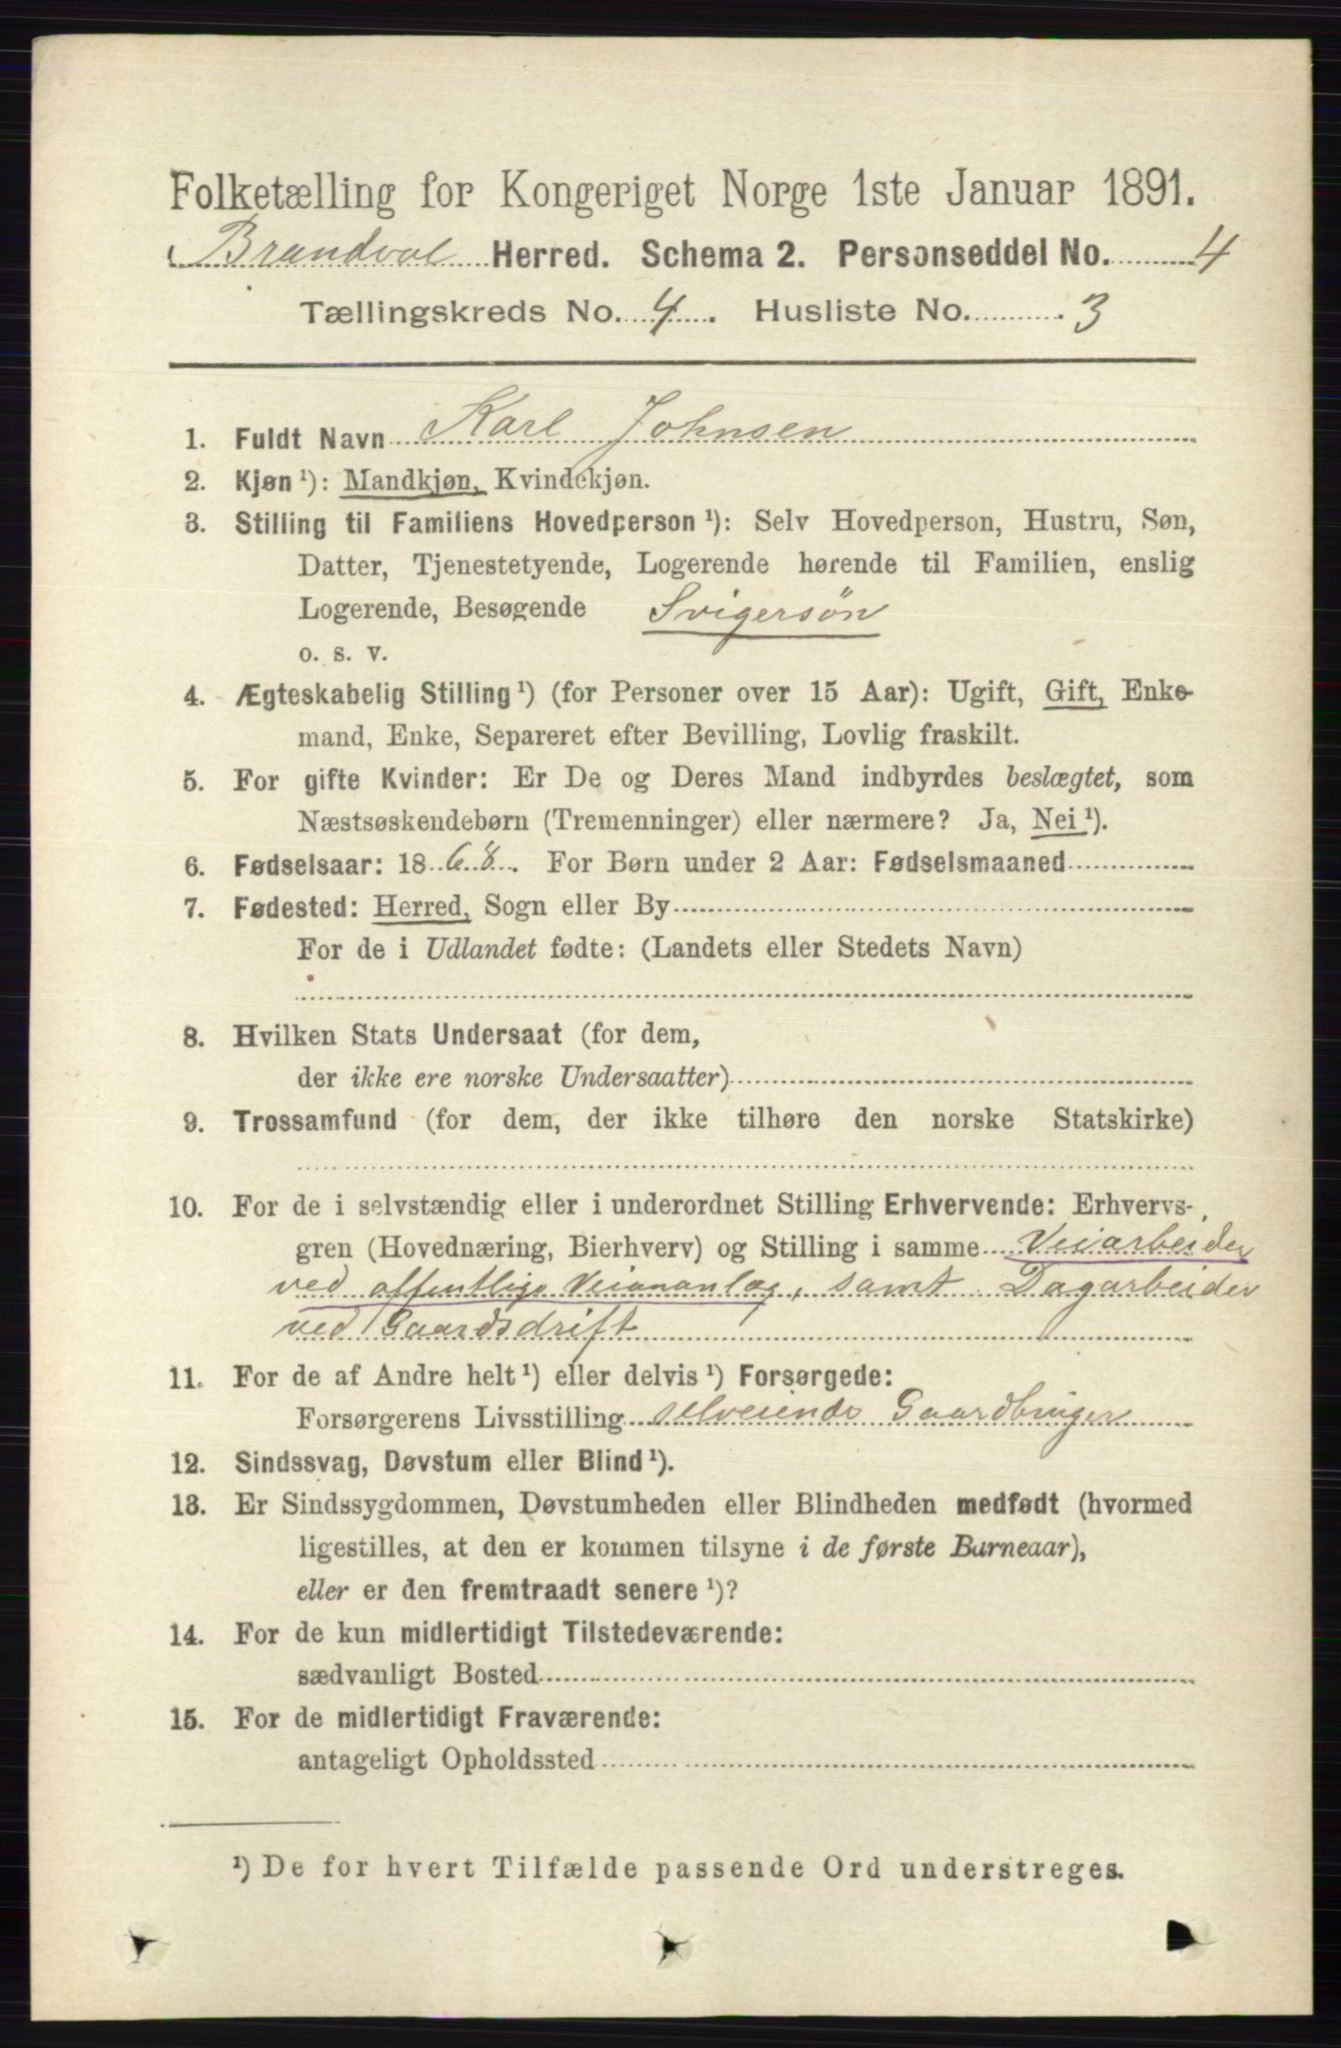 Folketælling for Kongeriget Norge 1ste Januar 1891.
Brandval Herred. Schema 2. Personseddel No. 4
Tællingskreds No. 4. Husliste No. 3
1. Fuldt Navn Karl Johnsen
2. Kjøn ¹): Mandkjøn, Kvindekjøn.
3. Stilling til Familiens Hovedperson ¹): Selv Hovedperson, Hustru, Søn,
Datter, Tjenestetyende, Logerende hørende til Familien, enslig
Logerende, Besøgende Svigersön
o. s. v.
4. Ægteskabelig Stilling ¹) (for Personer over 15 Aar): Ugift, Gift, Enke-
mand, Enke, Separeret efter Bevilling, Lovlig fraskilt.
5. For gifte Kvinder: Er De og Deres Mand indbyrdes beslægtet, som
Næstsøskendebørn (Tremenninger) eller nærmere? Ja, Nei ¹).
6. Fødselsaar: 1868. For Børn under 2 Aar: Fødselsmaaned
7. Fødested: Herred, Sogn eller By
For de i Udlandet fødte: (Landets eller Stedets Navn)
8. Hvilken Stats Undersaat (for dem,
der ikke ere norske Undersaatter)
9. Trossamfund (for dem, der ikke tilhøre den norske Statskirke)
10. For de i selvstændig eller i underordnet Stilling Erhvervende: Erhvervs-
gren (Hovednæring, Bierhverv) og Stilling i samme Veiarbeider
ved offentlige Veiananlæg, samt Dagarbeider
ved Gaardsdrift
11. For de af Andre helt ¹) eller delvis ¹) Forsørgede:
Forsørgerens Livsstilling selveiende Gaardbruger
12. Sindssvag, Døvstum eller Blind ¹).
13. Er Sindssygdommen, Døvstumheden eller Blindheden medfødt (hvormed
ligestilles, at den er kommen tilsyne i de første Barneaar),
eller er den fremtraadt senere ¹)?
14. For de kun midlertidigt Tilstedeværende:
sædvanligt Bosted
15. For de midlertidigt Fraværende:
antageligt Opholdssted
¹) De for hvert Tilfælde passende Ord understreges.